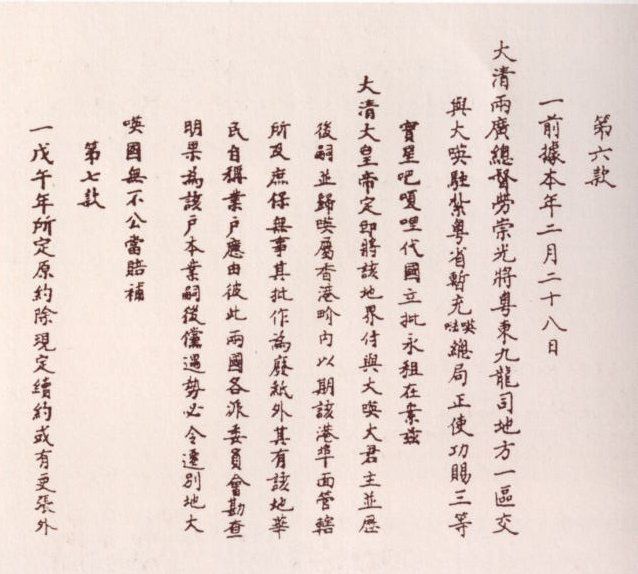 第六款
一前據本年二月二十八日
大清兩廣總督勞崇光將粵東九龍司地方一區交
與大𠸄駐紮粵省暫充𠸄𠵽總局正使功賜三等
寶星吧嗄哩代國立批永租在案茲
大清大皇帝定即將該地界付與大𠸄大君主並歷
後嗣並歸𠸄屬香港界內以期該港埠面管轄
所及庶保無事其批作為廢紙外其有該地華
民自稱業戶應由彼此兩國各派委員會勘查
明果為該戶本業嗣後儻遇勢必令遷別地大
𠸄國無不公當賠補
第七款
一戊午年所定原約除現定續約或有更張外